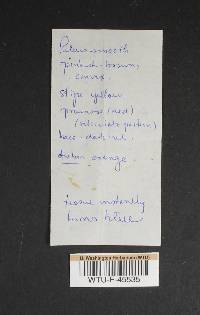 Pileus smooth
pinkish-brown,
convex.
Stipe yellow
pruinose (red)
(reticulate pattern)
base dark red.
orange.
tissue instantly
turns blue
U. Washington Herbarium (WTU)
WTU-F-45535